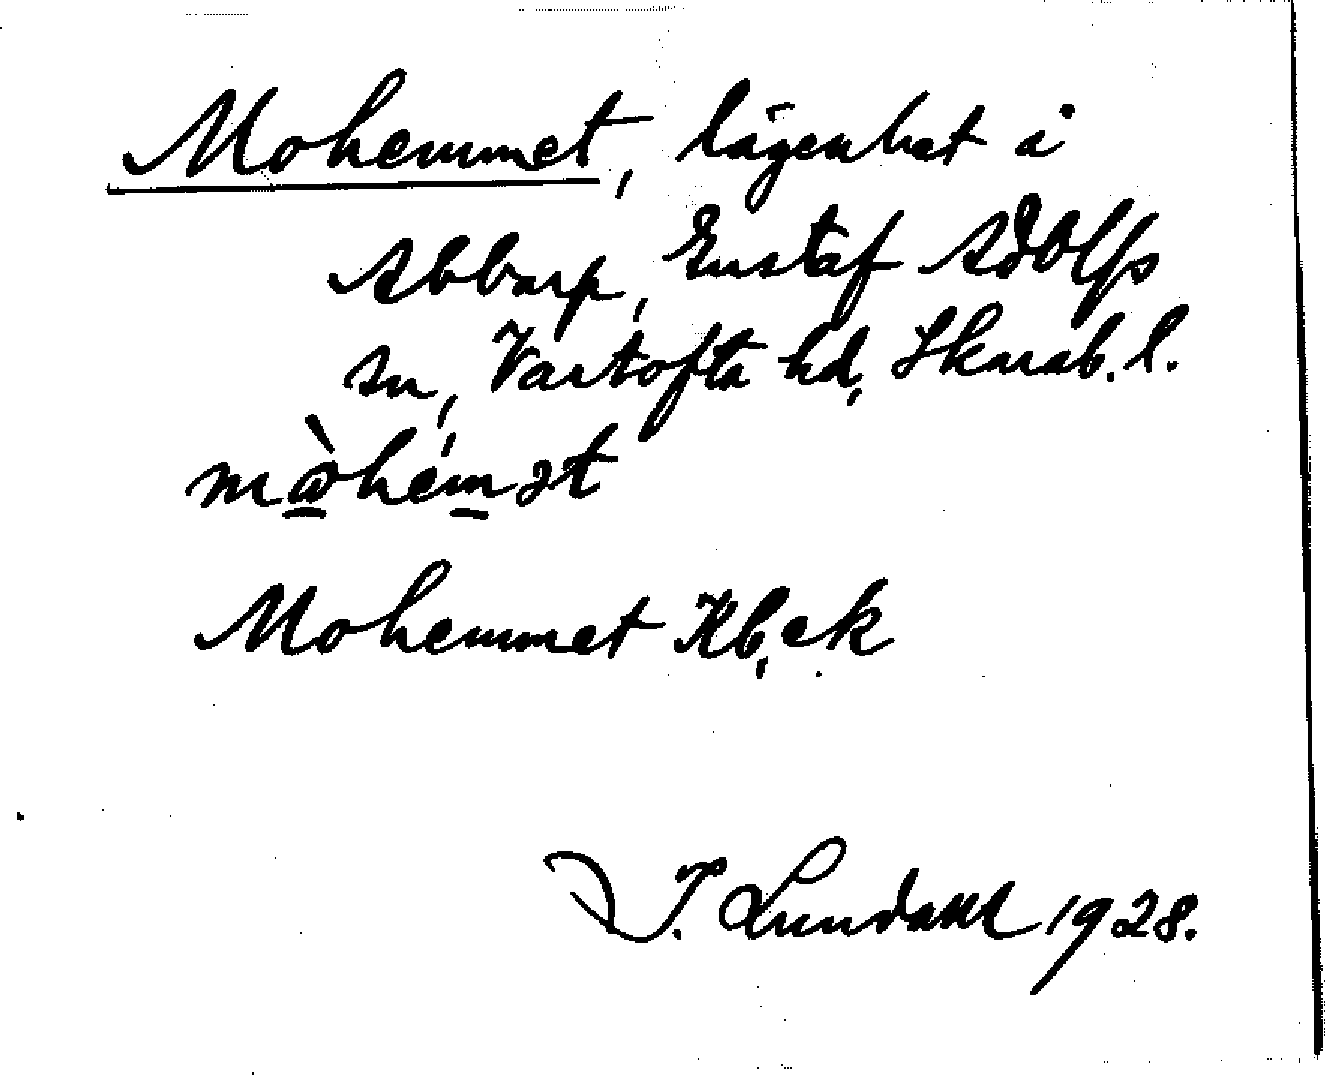 Mohemmet, lägenhet i
Abbarp, Gustaf Adolfs
sn, Vartofta hd, Skarab. l.
Mohemmet Kb, ek.
I. Lundahl 1928.